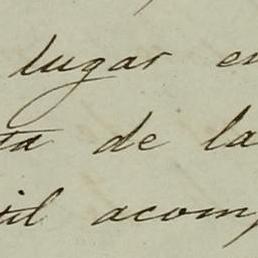 lugar en
ta de la
til acomp